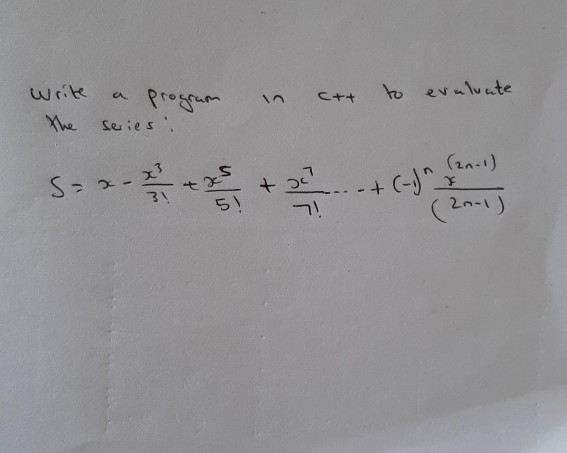 Write a program in c++ to evaluate
the series:
S = x - x³/3! + x⁵/5! + x⁷/7! .... + (-1)ⁿ x^(2n-1)/(2n-1)